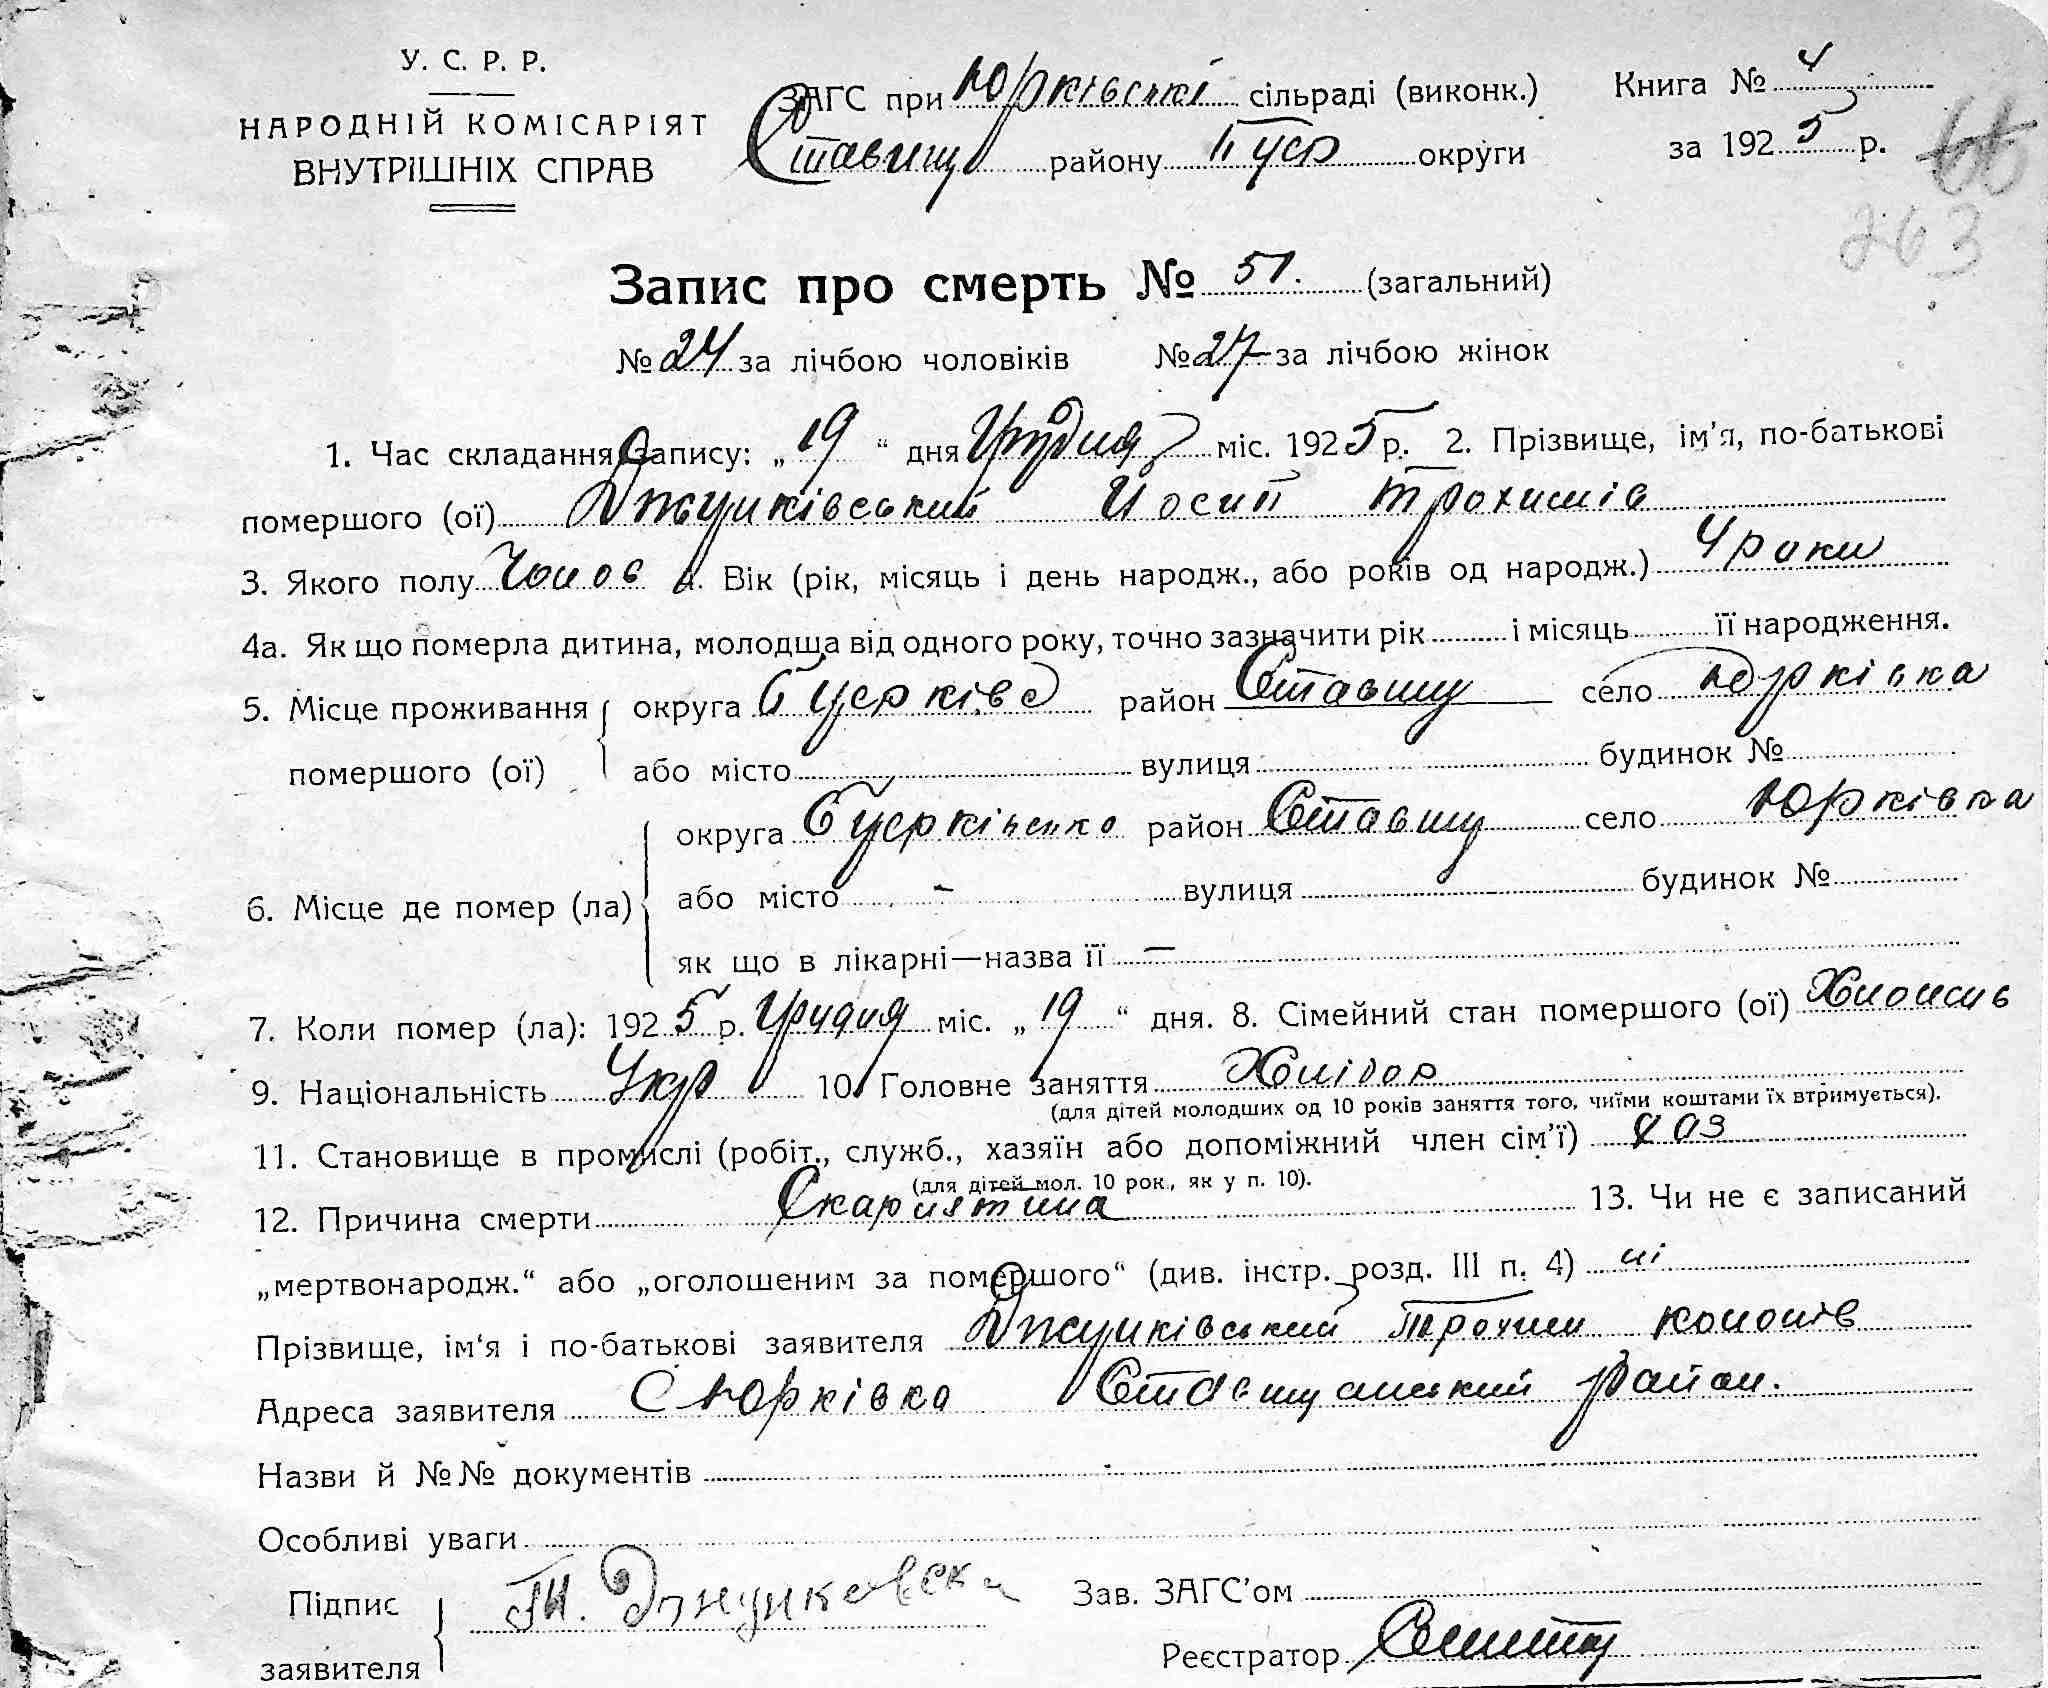 У. С. Р. Р.
НАРОДНІЙ КОМІСАРІЯТ
ВНУТРІШНІХ СПРАВ
ЗАГС при Юрківські сільраді (виконк.)
Ставищ району Буср округи
Книга № 4
за 1925 р.
263
Запис про смерть № 51. (загальний)
№ 24 за лічбою чоловіків № 27 за лічбою жінок
1. Час складання запису: „ 19 “ дня Грудня міс. 1925 р. 2. Прізвище, ім'я, по-батькові
помершого (ої) Джулківський Йосип Трохимів
3. Якого полу Чолов 4. Вік (рік, місяць і день народж., або років од народж.) 4 роки
4а. Як що померла дитина, молодша від одного року, точно зазначити рік і місяць її народження.
5. Місце проживання помершого (ої) округа район Ставищ село Юрківка
або місто вулиця будинок №
6. Місце де помер (ла) округа район Ставищ село Юрківка
або місто - вулиця будинок №
як що в лікарні—назва її —
7. Коли помер (ла): 1925 р. Грудня міс. „ 19 “ дня. 8. Сімейний стан помершого (ої)
9. Національність Укр 10. Головне заняття Хлібор
(для дітей молодших од 10 років заняття того, чиїми коштами їх втримується).
11. Становище в промислі (робіт., служб., хазяїн або допоміжний член сім'ї) хаз
(для дітей мол. 10 рок., як у п. 10).
12. Причина смерти Скарлятина 13. Чи не є записаний
„мертвонародж.“ або „оголошеним за помершого“ (див. інстр. розд. III п. 4) ні
Прізвище, ім'я і по-батькові заявителя Джулківський Трохим
Адреса заявителя С Юрківка Ставищанський район.
Назви й №№ документів
Особливі уваги
Підпис заявителя
Зав. ЗАГС'ом
Реєстратор